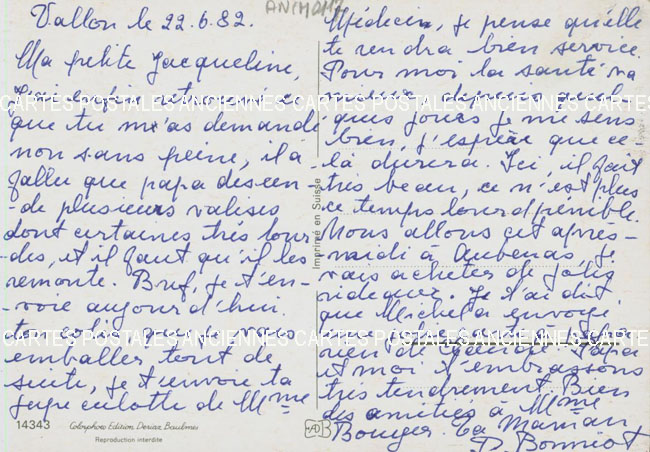 Vallon le 22.6.82.
Ma petite Jacqueline,
J'ai pu retrouver ce
que tu m'as demandé
non sans peine, il a
fallu que papa descen-
de plusieurs valises
dont certaines très lour-
des, et il faut qu'il les
remonte. Bref, je t'en-
voie aujourd'hui
emballer tout de
suite, je t'envoie ta
jupe culotte de Mme
14343
Colorphoto Edition Deriaz Baulmes
Reproduction interdite
Imprimé en Suisse
ANIMAUX
Médecin, je pense qu'elle
te rendra bien service.
Pour moi la santé va
mieux, depuis quel-
ques jours je me sens
bien, j'espère que ce-
là durera. Ici, il fait
très beau, ce n'est plus
ce temps lourd pénible.
Nous allons cet après-
midi à Aubenas, je
vais acheter de jolis
rideaux. Je t'ai dit
que Michel a envoyé
rien de Papa
et moi t'embrassons
très tendrement. Bien
des amitiés à Mme
Bouger. Ta Maman
D. Bonniot
CARTES POSTALES ANCIENNES CARTES POSTALES ANCIENNES
CARTES POSTALES ANCIENNES CARTES POSTALES ANCIENNES